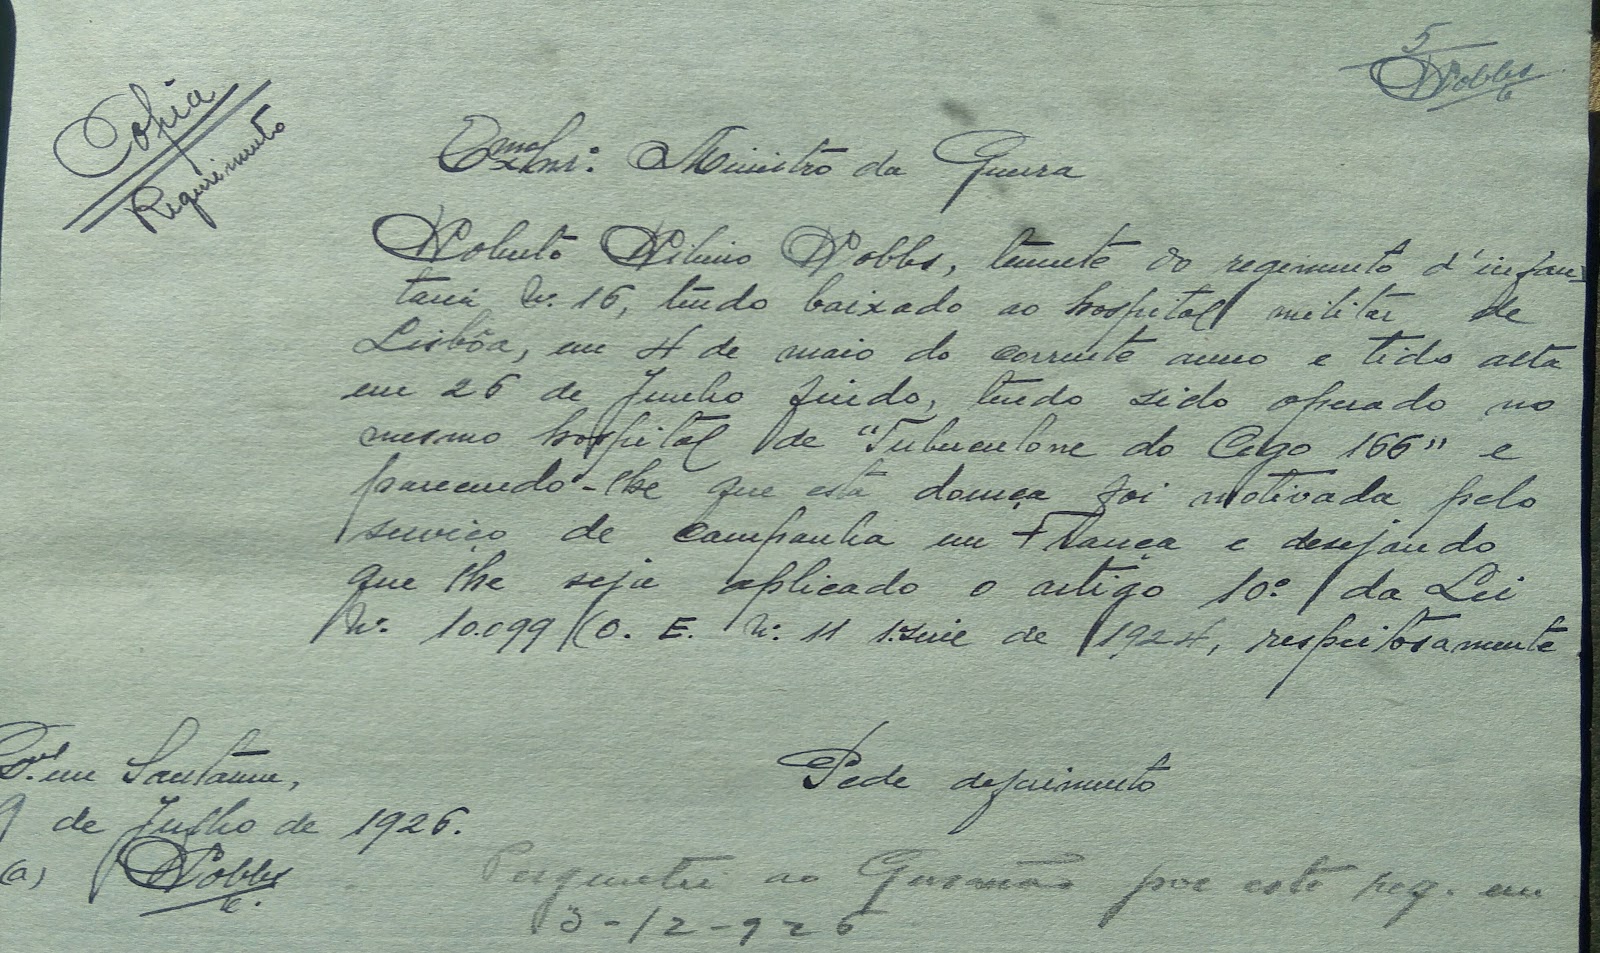 Copia
Requerimento
5
Robles
Exmo. Snr. Ministro da Guerra
Roberto Ribeiro Robles, tenente do regimento d'infan-
taria N.º 16, tendo baixado ao hospital militar de
Lisbôa, em 4 de maio do corrente anno e tido alta
em 26 de Junho findo, tendo sido operado no
mesmo hospital de "Tuberculone do Cego 166" e
parecendo-lhe que esta doença foi motivada pelo
serviço de Campanha em França e desejando
que lhe seja aplicado o artigo 10º da Lei
N.º 10.099 (O. E. N.º 11 1.serie de 1924, respeitosamente
Pede deferimento
em Santarem,
9 de Julho de 1926.
(a) Robles
Perguntei ao Gusmão por este req. em
3-12-926